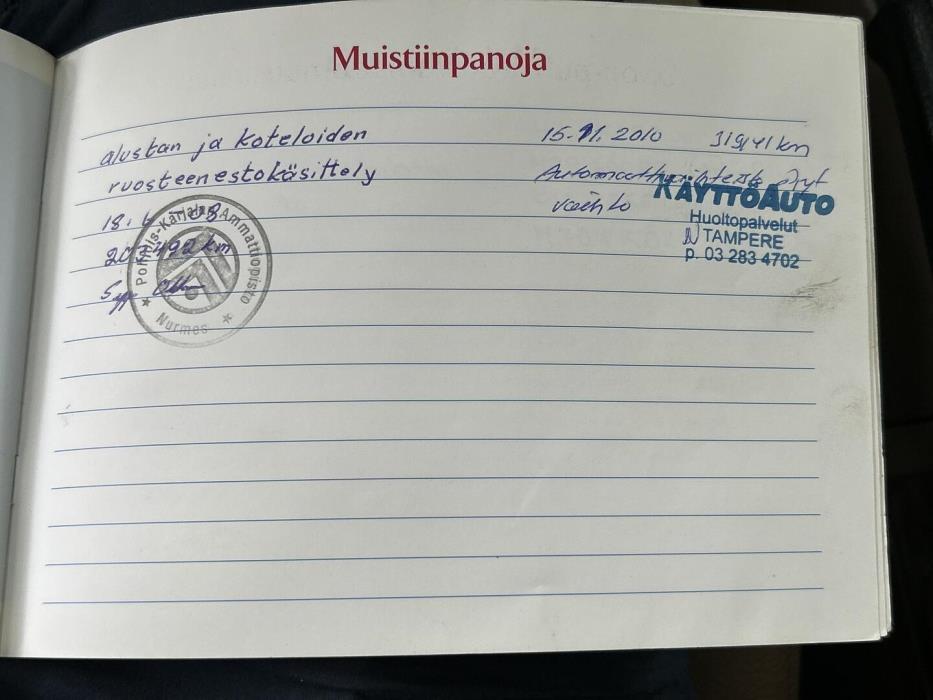 Muistiinpanoja
alustan ja koteloiden
ruosteenestokäsittely
18.6
203492 km
Pohjois-Karjalan Ammattiopisto
Nurmes
15.11.2010 319141 km
Automaattivaihteisto öljyt
vaihto
KÄYTTÖAUTO
Huoltopalvelut
TAMPERE
p. 03 283 4702